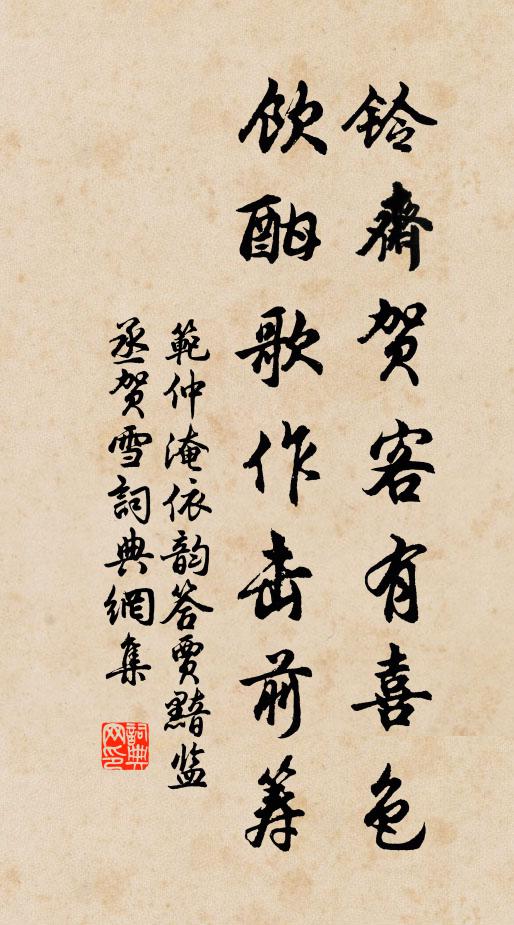 铃齋贺客有喜色
飲酣歌作击前筹
範仲淹依韵答賈黯监
丞贺雪詞典網集
詞典网印